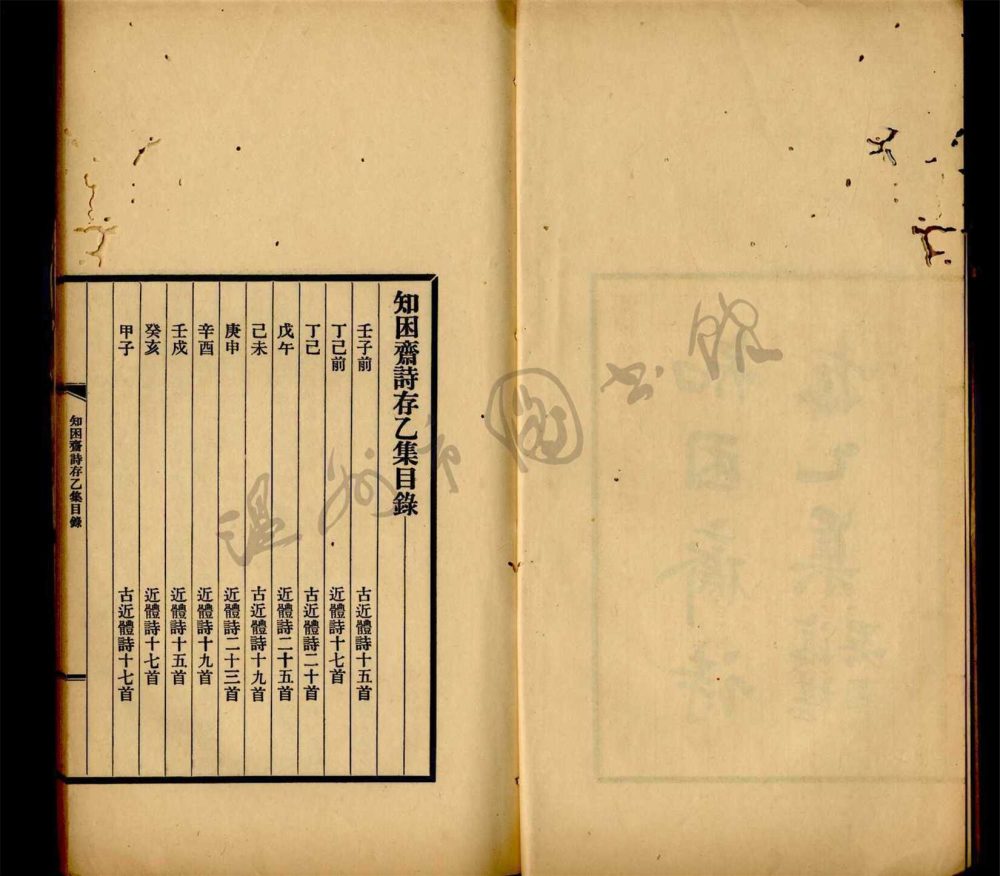 知困齋詩存乙集目錄
壬子前 古近體詩十五首
丁己前 近體詩十七首
丁己 古近體詩二十首
戊午 近體詩二十五首
己未 古近體詩十九首
庚申 近體詩二十三首
辛酉 近體詩十九首
壬戍 近體詩十五首
癸亥 近體詩十七首
甲子 古近體詩十七首
知困齋詩存乙集目錄
溫州市圖书館